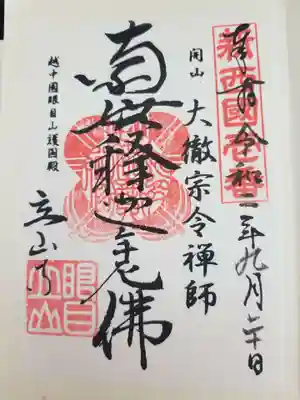 奉拝 令和二年九月二十日
開山 大徹宗令禅師
南無釋迦牟尼佛
越中國眼目山護國殿
立山寺